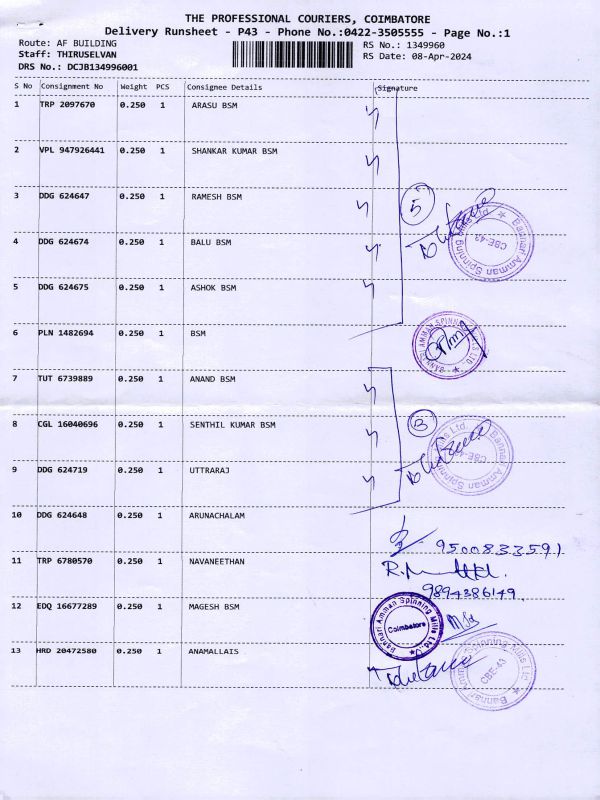 THE PROFESSIONAL COURIERS, COIMBATORE
Delivery Runsheet - P43 - Phone No.:0422-3505555 - Page No.:1
Route: AF BUILDING
Staff: THIRUSELVAN
DRS No.: DCJB134996001
RS No.: 1349960
RS Date: 08-Apr-2024
S No Consignment No Weight PCS Consignee Details Signature
1 TRP 2097670 0.250 1 ARASU BSM
2 VPL 947926441 0.250 1 SHANKAR KUMAR BSM
3 DDG 624647 0.250 1 RAMESH BSM
5
Bannari Amman Spinning Mills Ltd. CBE-43
4 DDG 624674 0.250 1 BALU BSM
5 DDG 624675 0.250 1 ASHOK BSM
6 PLN 1482694 0.250 1 BSM
7 TUT 6739889 0.250 1 ANAND BSM
8 CGL 16040696 0.250 1 SENTHIL KUMAR BSM
3
Bannari Amman Spinning Mills Ltd. CBE-43
9 DDG 624719 0.250 1 UTTRARAJ
10 DDG 624648 0.250 1 ARUNACHALAM
9500833591
11 TRP 6780570 0.250 1 NAVANEETHAN
9894386149
12 EDQ 16677289 0.250 1 MAGESH BSM
Bannari Amman Spinning Mills Ltd. Coimbatore
13 HRD 20472580 0.250 1 ANAMALLAIS
Bannari Amman Spinning Mills Ltd CBE-43